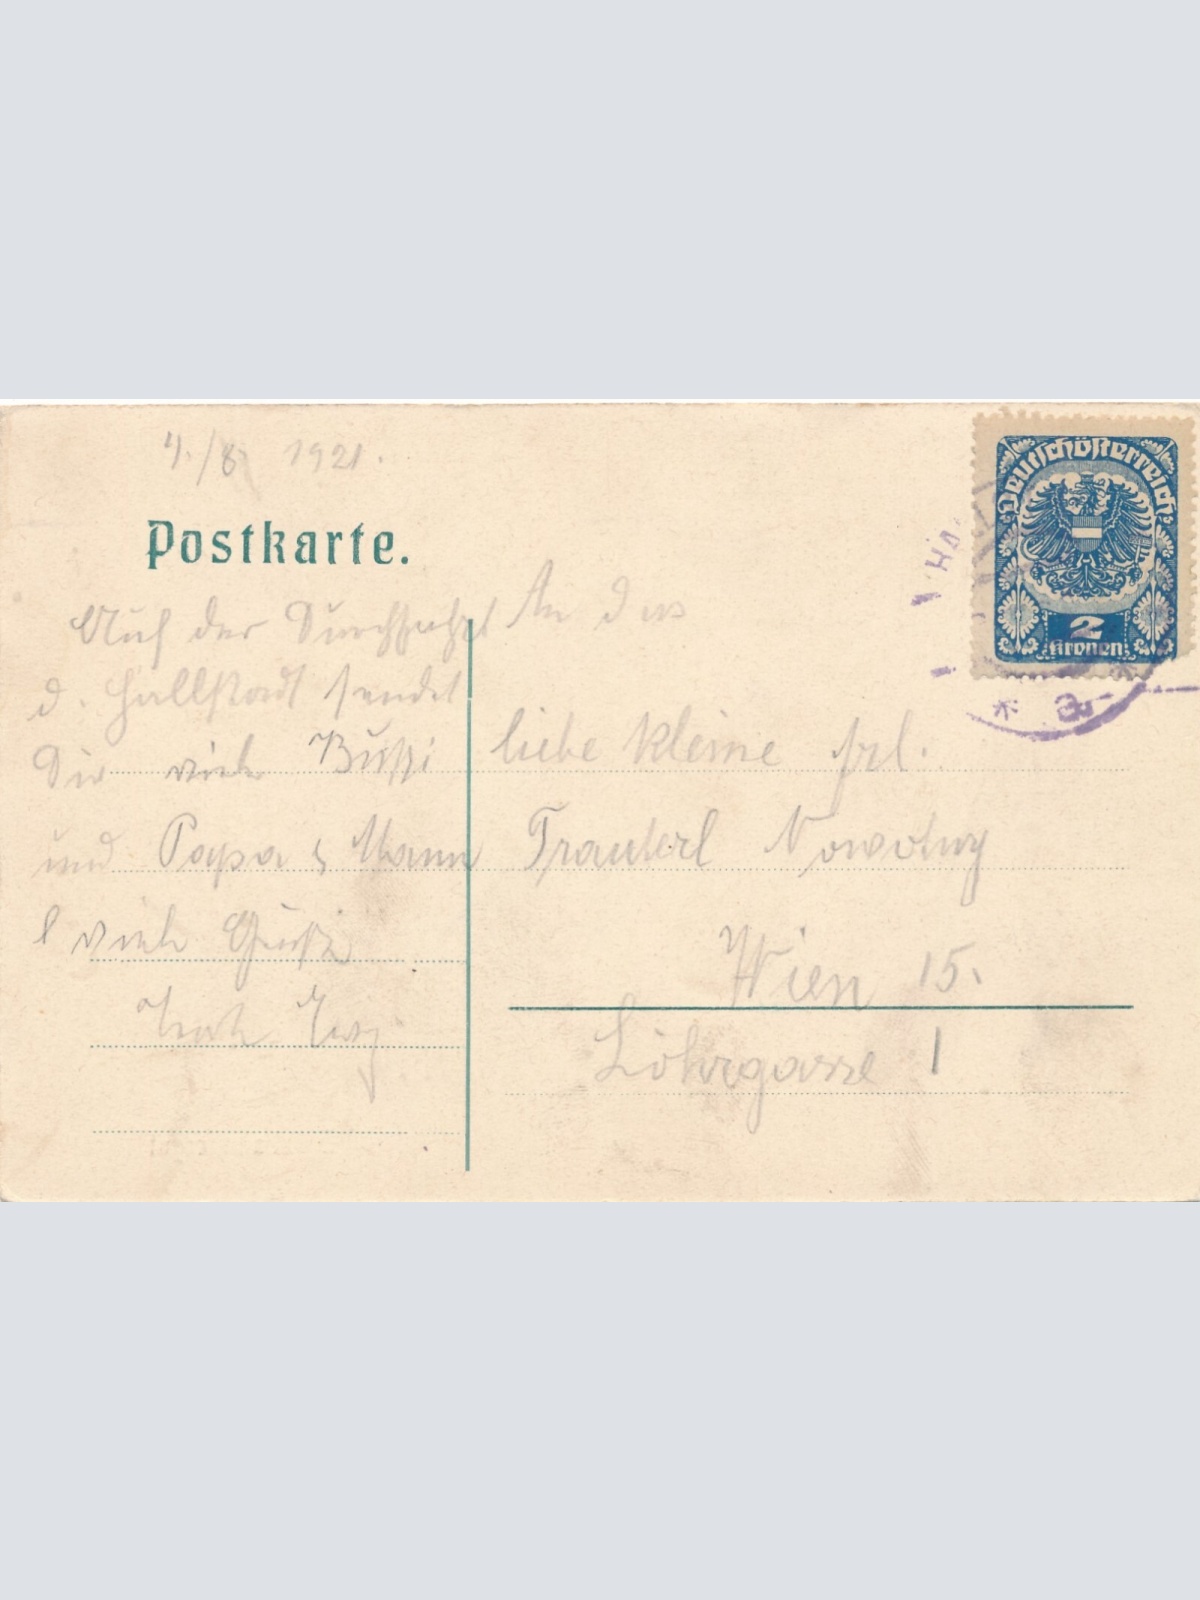 4./8 1921.
Postkarte.
Auf der Durchfahrt
d. Hallstadt sendet
Dir viele Bussi
und Papa & Mama
viele Grüße
An das
liebe kleine Frl.
Trauterl Nowotny
Wien 15.
Löhrgasse 1
Deutschösterreich
2
Kronen
* a